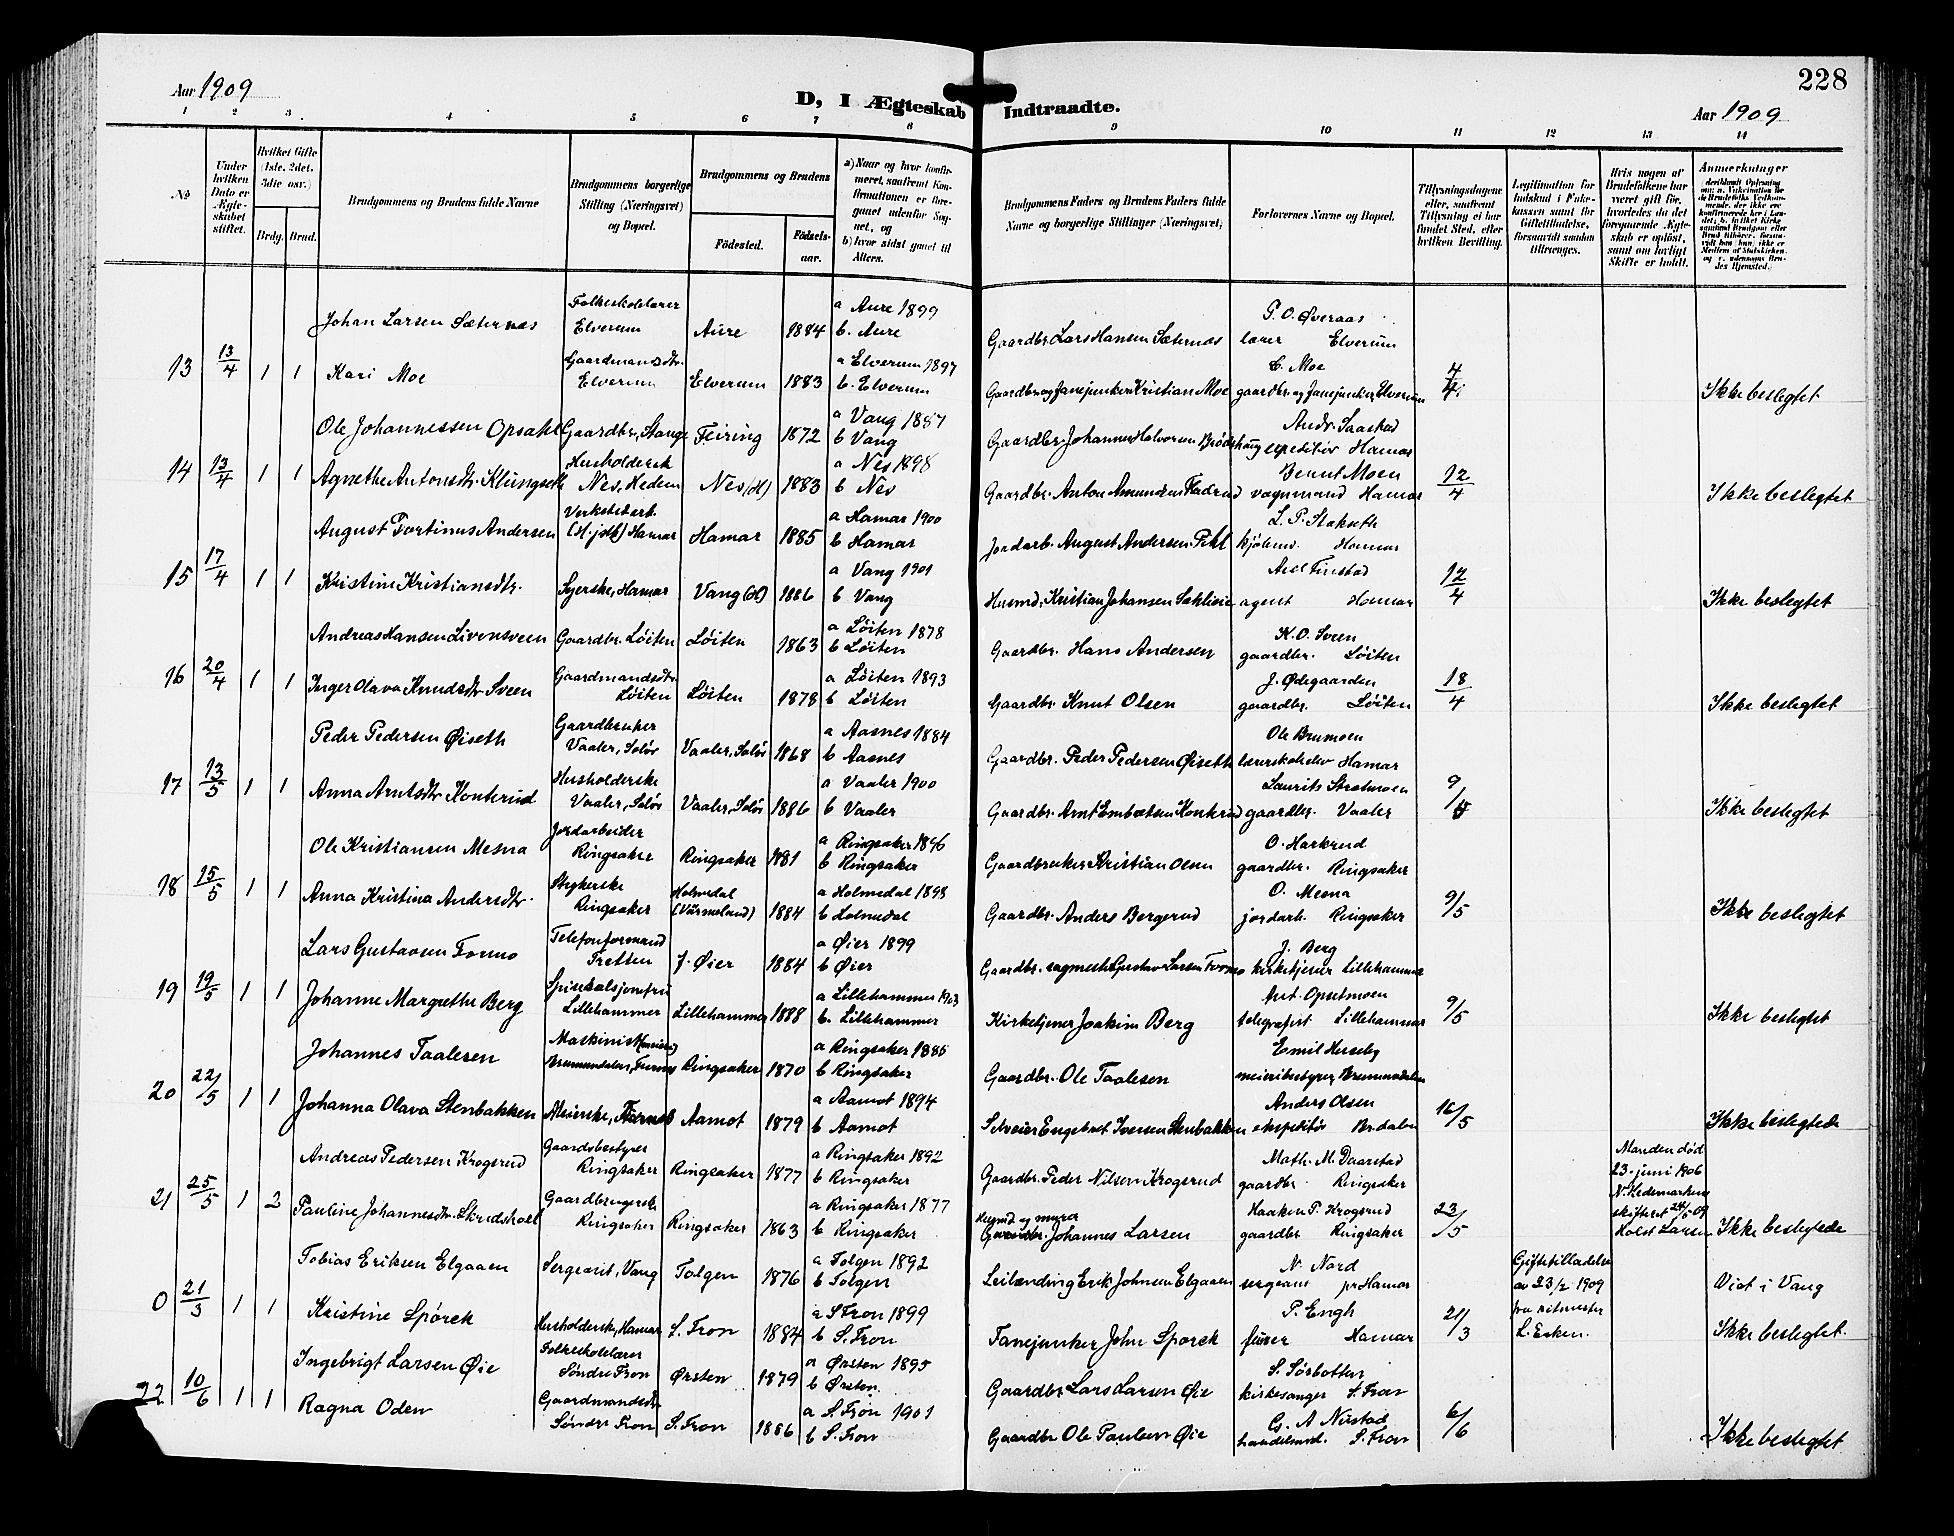 228
Aar 1909
D, I Ægteskab Indtraadte.
Aar 1909
1 2 3 4 5 6 7 8 9 10 11 12 13 14
No
Under hvilken Dato er Ægteskabet stiftet.
Hvilket Gifte (1ste, 2det, 3die osv.)
Brdg. Brud.
Brudgommens og Brudens fulde Navne
Brudgommens borgerlige Stilling (Næringsvei) og Bopæl.
Brudgommens og Brudens
Fødested. Fødselsaar.
a) Naar og hvor konfirmeret, saafremt Konfirmationen er foregaaet udenfor Sognet, og
b) hvor sidst gaaet til Alters.
Brudgommens Faders og Brudens Faders fulde Navne og borgerlige Stillinger (Næringsvei)
Forlovernes Navne og Bopæl.
Tillysningsdagene eller, saafremt Tillysning ei har fundet Sted, efter hvilken Bevilling.
Legitimation for Indskud i Enkekassen samt for Giftetilladelse, forsaavidt saadan tiltrænges.
Hvis nogen af Brudefolkene har været gift før, hvorledes da det foregaaende Ægteskab er opløst, samt om lovligt Skifte er holdt.
Anmerkninger
Johan Larsen Sæternes Folkeskolelærer Elverum Aure 1884 a Aure 1899 b. Aure Gaardbr. Lars Hansen Sæternes P. O. Øveraas lærer Elverum
13 13/4 1 1 Kari Moe Gaardmandsdtr. Elverum Elverum 1883 a Elverum 1897 b. Elverum Gaardbr. og fanejunker Kristian Moe C. Moe gaardbr. og fanejunker Elverum 4/4 Ikke beslegtet.
Ole Johannessen Opsahl Gaardbr., Stange Feiring 1872 a Vang 1887 b Vang Gaardbr. Johannes Halvorsen Brødshaug Andr. Saastad expeditør Hamar
14 13/4 1 1 Agnethe Antonsdtr. Klungseth Husholdersk Nes, Hedem Nes (H) 1883 a Nes 1898 b Nes Gaardbr. Anton Amundsen Bernt Moen vognmand Hamar 12/4 Ikke beslegtet
August Fortinus Andersen Verkstedarb. Hamar Hamar 1885 a Hamar 1900 b Hamar Jordarb. August Andersen L. P. Stakseth kjøbmd. Hamar
15 17/4 1 1 Kristine Kristiansdtr. Syerske, Hamar Vang (H) 1886 a Vang 1901 b Vang Husmd. Kristian Johansen Sæhlieie Axel Finstad agent Hamar 12/4 Ikke beslegtet
Andreas Hansen Livensveen Gaardbr. Løiten Løiten 1863 a Løiten 1878 b Løiten Gaardbr. Hans Andersen K. O. Sveen gaardbr. Løiten
16 20/4 1 1 Inger Olava Knudsdtr Sveen Gaardmandsdtr. Løiten Løiten 1878 a Løiten 1893 b Løiten Gaardbr. Knut Olsen J. Ødegaarden gaardbr. Løiten 18/4 Ikke beslegtet
Peder Pedersen Øiseth Gaardbruker Vaaler, Solør Vaaler, Solør 1868 a Aasnes 1884 b Aasnes Gaardbr. Peder Pedersen Øiseth Ole Brumoen lærerskoleelev Hamar
17 13/5 1 1 Anna Arntsdtr Konterud Husholderske Vaaler, Solør Vaaler, Solør 1886 a Vaaler 1900 b Vaaler Gaardbr. Arnt Embretsen Konterud Laurits Stratmoen gaardbr. Vaaler 9/5 Ikke beslegtet
Ole Kristiansen Mesna Jordarbeider Ringsaker Ringsaker 1881 a Ringsaker 1896 b Ringsaker Gaardbruker Kristian Olsen O. Harkrud gaardbr. Ringsaker
18 15/5 1 1 Anna Kristina Andersdtr. Strykerske Ringsaker Holmedal (Värmeland) 1884 a Holmedal 1898 b Holmedal Gaardbr. Anders Bergerud O. Mesna jordarb. Ringsaker 9/5 Ikke beslegtet
Lars Gustavsen Formo Telefonformand Tretten Ø. Øier 1884 a Øier 1899 b Øier Gaardbr. sagmester Gustav Larsen Formo J. Berg kirketjener Lillehammer
19 19/5 1 1 Johanne Margrethe Berg Spisesalsjomfru Lillehammer Lillehammer 1888 a Lillehammer 1903 b. Lillehammer Kirketjener Joakim Berg Ant. Opsetmoen telegrafist Lillehammer 9/5 Ikke beslegtet
Johannes Taalesen Maskinist Brumunddalen, Furnes Ringsaker 1870 a Ringsaker 1885 b Ringsaker Gaardbr. Ole Taalesen Emil Herseby meieribestyrer, Brumunddalen
20 22/5 1 1 Johanna Olava Stenbakken Meierske, Furnes Aamot 1879 a Aamot 1894 b Aamot Selveier Engebret Iversen Stenbakken Anders Olsen ekspeditør Br.dalen 16/5 Ikke beslegtede
Andreas Pedersen Krogsrud Gaardsbestyrer Ringsaker Ringsaker 1877 a Ringsaker 1892 b Ringsaker Gaardbr. Peder Nilsen Krogsrud Math. M. Daarstad gaardbr. Ringsaker
21 25/5 1 2 Pauline Johannesdtr. Skredshol Gaardbrugerske Ringsaker Ringsaker 1863 a Ringsaker 1877 b Ringsaker Husmd og murer Johannes Larsen Haaken P. Krogsrud gaardbr Ringsaker 23/5 Manden død 23. juni 1906 N. Hedemarkens skifteret 24/5 09 Holst Larsen Ikke beslegtede
Tobias Eriksen Elgaaen Sergeant, Vang Tolgen 1876 a Tolgen 1892 b Tolgen Leilænding Erik Johnsen Elgaaen N. Nord sergeant pr Hamar Giftetilladelse av 23/2 1909 fra ritmester L. Esken. Viet i Vang
0 21/3 1 1 Kristine Spørck Husholdersk, Hamar S. Fron 1884 a S. Fron 1899 b S. Fron Fanejunker John Spørck P. Engh furer Hamar 21/3 Ikke beslegtet.
Ingebrigt Larsen Øie Folkeskolelærer Søndre Fron Ørsten 1879 a Ørsten 1895 b Ørsten. Gaardbr Lars Larsen Øie S. Sørbotten kirkesanger S. Fron
22 10/6 1 1 Ragna Oden Gaardmandsdtr Søndre Fron S. Fron 1886 a S. Fron 1901 b S. Fron Gaardbr Ole Paulsen Øie G. A Nustad handelsmd. S. Fron 6/6 Ikke beslegtet